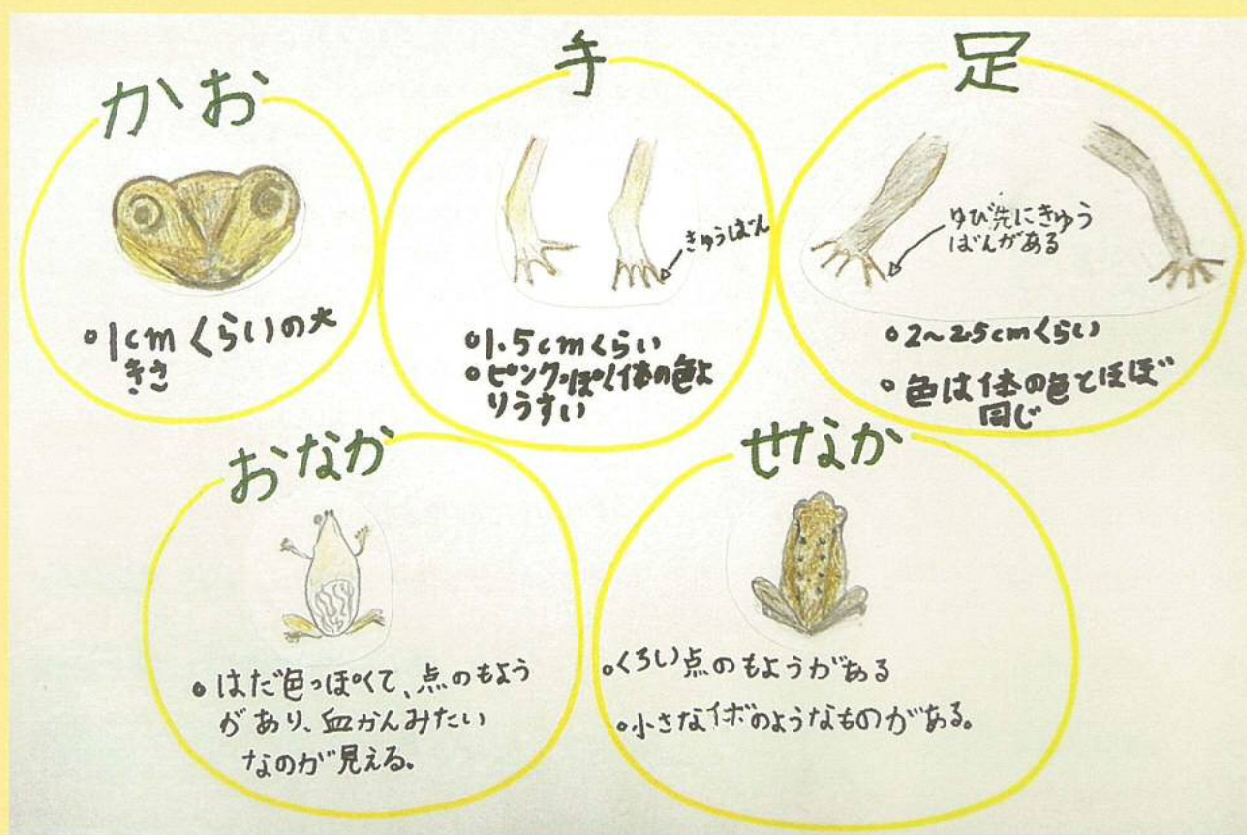 かお
・1cmくらいの大
きさ
手
きゅうばん
・1.5cmくらい
・ピンクっぽく体の色よ
りうすい
足
ゆび先にきゅう
ばんがある
・2~2.5cmくらい
・色は体の色とほぼ
同じ
おなか
・はだ色っぽくて、点のもよう
があり、血かんみたい
なのが見える。
せなか
・くろい点のもようがある
・小さなイボのようなものがある。